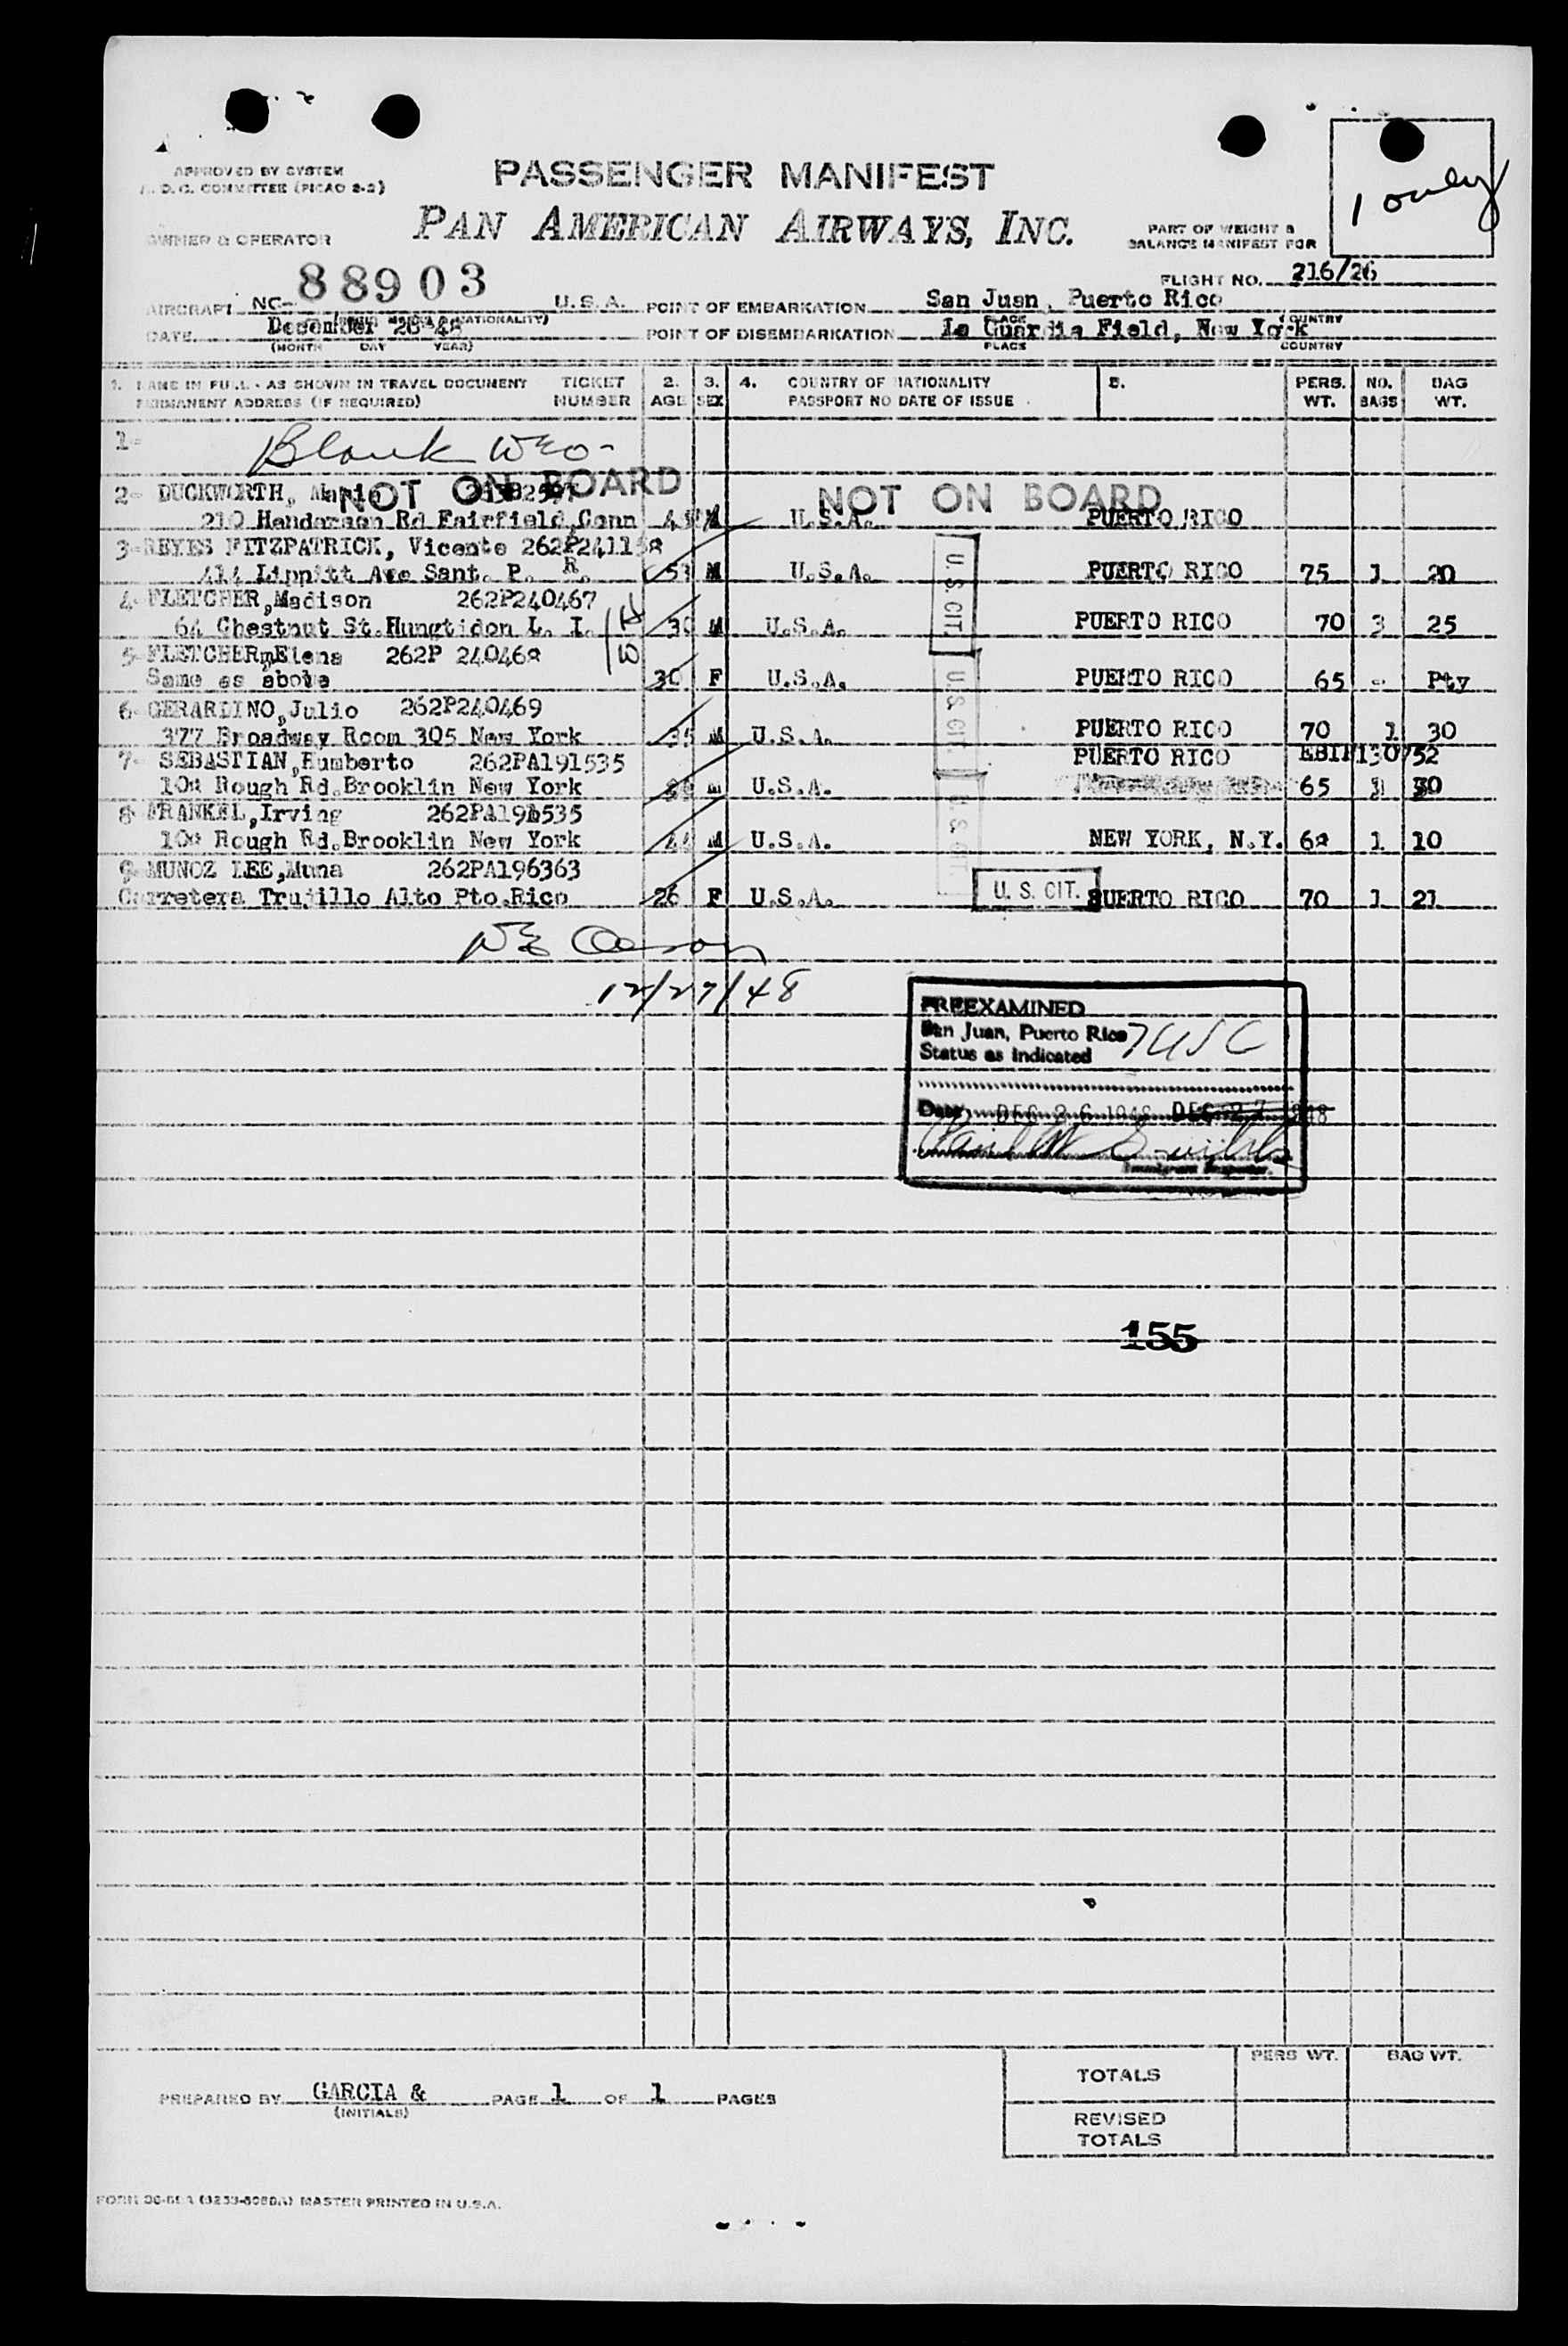 1 only
APPROVED BY SYSTEM
A. D. C. COMMITTEE (PICAO 2-2)
PASSENGER MANIFEST
PAN AMERICAN AIRWAYS, INC.
OWNER & OPERATOR
PART OF WEIGHT &
BALANCE MANIFEST FOR
FLIGHT NO. 216/26
AIRCRAFT NC- 88903 U.S.A.
POINT OF EMBARKATION San Juan, Puerto Rico
PLACE COUNTRY
DATE December 26 48
(MONTH DAY YEAR)
POINT OF DISEMBARKATION La Guardia Field, New York
PLACE COUNTRY
1. NAME IN FULL - AS SHOWN IN TRAVEL DOCUMENT TICKET 2. 3. 4. COUNTRY OF NATIONALITY 5. PERS. NO. BAG
PERMANENT ADDRESS (IF REQUIRED) NUMBER AGE SEX PASSPORT NO DATE OF ISSUE WT. BAGS WT.
1- Blank
2- DUCKWORTH, NOT ON BOARD NOT ON BOARD
210 Henderson Rd Fairfield, Conn U.S.A. PUERTO RICO
3- REYES FITZPATRICK, Vicente 262P241158
414 Lippitt Ave Sant. P. R. 53 M U.S.A. U.S. CIT. PUERTO RICO 75 1 20
4- FLETCHER, Madison 262P240467
64 Chestnut St. Hungtidon L. I. 30 M U.S.A. PUERTO RICO 70 3 25
5- FLETCHER, Elena 262P 240468
Same as above 30 F U.S.A. U.S. CIT. PUERTO RICO 65 - Pty
6- GERARDINO, Julio 262P240469
377 Broadway Room 305 New York 35 M U.S.A. PUERTO RICO 70 1 30
7- SEBASTIAN, Humberto 262PA191535 PUERTO RICO
108 Hough Rd. Brooklin New York M U.S.A. 65 30
8- FRANKEL, Irving
108 Hough Rd. Brooklin New York 44 M U.S.A. NEW YORK, N.Y. 68 1 10
9- MUNOZ LEE, Muna 262PA196363
Carretera Trujillo Alto Pto.Rico 26 F U.S.A. U. S. CIT. PUERTO RICO 70 1 21
12/27/48
PREEXAMINED
San Juan, Puerto Rico 7USC
Status as indicated
Date DEC 26 1948 DEC 27 1948
Immigrant Inspector.
155
PERS WT. BAG WT.
TOTALS
PREPARED BY GARCIA & PAGE 1 OF 1 PAGES
(INITIALS)
REVISED
TOTALS
MASTER PRINTED IN U.S.A.